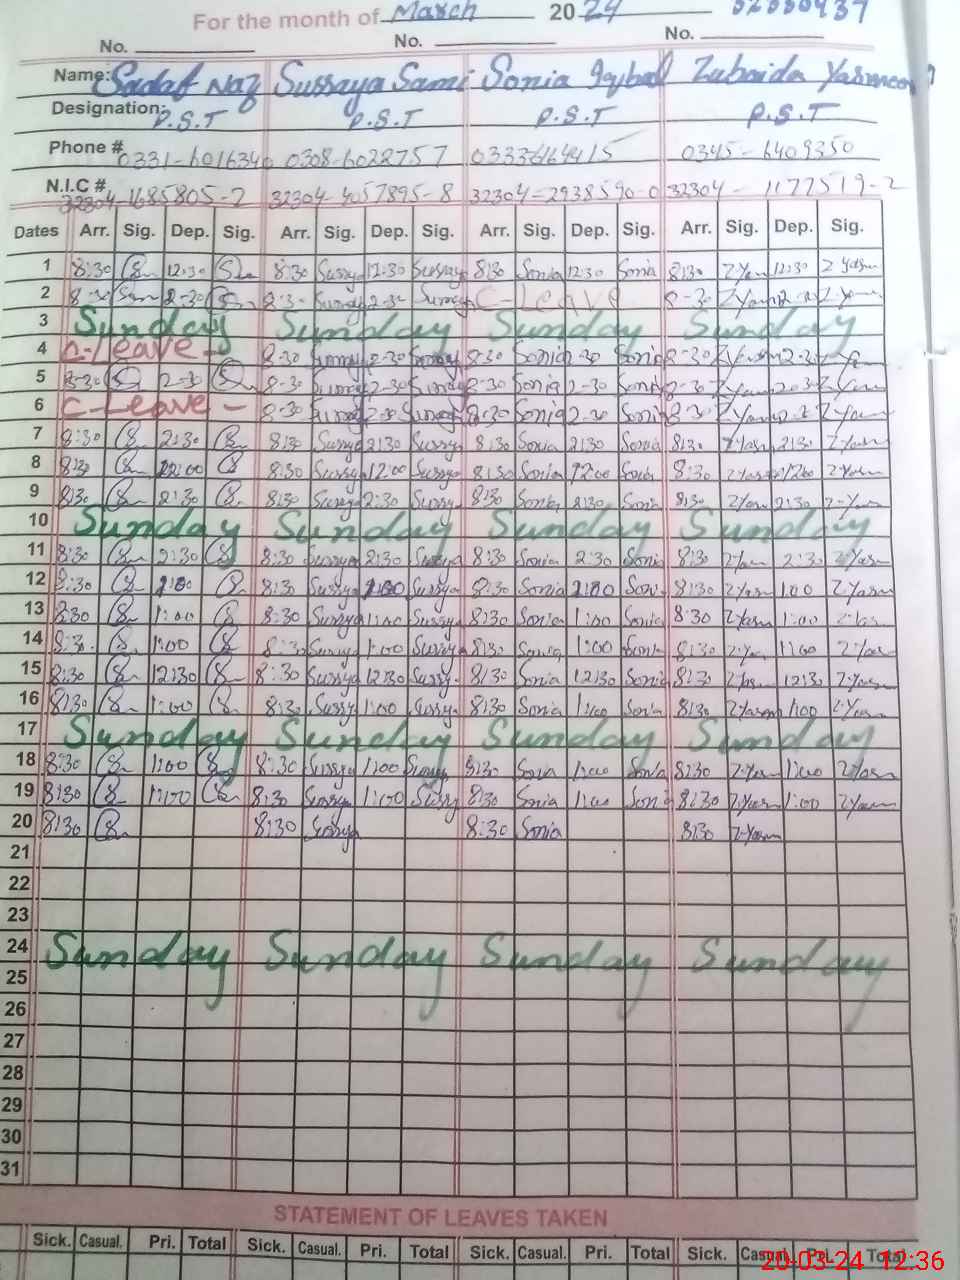 For the month of March 2024
No. No. No.
Name: Sadaf Naz Sussaya Sami Sonia Iqbal Zubaida Yasmeen
Designation: P.S.T P.S.T P.S.T P.S.T
Phone # 0331-6016340 0308-6022757 03336164415 0345-6409350
N.I.C # 32304-1685805-2 32304-4057895-8 32304-2938590-0 32304-1177519-2
Dates Arr. Sig. Dep. Sig. Arr. Sig. Dep. Sig. Arr. Sig. Dep. Sig. Arr. Sig. Dep. Sig.
1 8:30 12:30 8:30 Sussaya 12:30 Sussaya 8:30 Sonia 12:30 Sonia 8:30 Z Yasm 12:30 Z Yasm
2 8-30 2-30 8-30 2-30 C-Leave 8-30
3 Sunday Sunday Sunday Sunday
4 C-Leave- 8-30 2-30 8-30 Sonia 2-30 Sonia 8-30 2-30
5 8-30 2-30 8-30 2-30 8-30 Sonia 2-30 Sonia 8-30 2-30
6 C-Leave- 8-30 2-30 8-30 Sonia 2-30 Sonia 8-30
7 8:30 2:30 8:30 Sussya 2:30 Sussya 8:30 Sonia 2:30 Sonia 8:30 Z Yasm 2:30 Z Yasm
8 8:30 12:00 8:30 Sussya 12:00 Sussya 8:30 Sonia 12:00 Sonia 8:30 Z Yasm 12:00 Z Yasm
9 8:30 2:30 8:30 Sussya 2:30 Sussya 8:30 Sonia 2:30 Sonia 8:30 Z Yasm 2:30 Z Yasm
10 Sunday Sunday Sunday Sunday
11 8:30 2:30 8:30 Sussya 2:30 Sussya 8:30 Sonia 2:30 Sonia 8:30 2:30 Z Yasm
12 8:30 1:00 8:30 Sussya 1:00 Sussya 8:30 Sonia 1:00 Sonia 8:30 Z Yasm 1:00 Z Yasm
13 8:30 1:00 8:30 Sussya 1:00 Sussya 8:30 Sonia 1:00 Sonia 8:30 Z Yasm 1:00 Z Yasm
14 8:30 1:00 8:30 Sussya 1:00 Sussya 8:30 Sonia 1:00 Sonia 8:30 1:00
15 8:30 12:30 8:30 Sussya 12:30 Sussya 8:30 Sonia 12:30 Sonia 8:30 Z Yasm 12:30 Z Yasm
16 8:30 1:00 8:30 Sussya 1:00 Sussya 8:30 Sonia 1:00 Sonia 8:30 Z Yasm 1:00 Z Yasm
17 Sunday Sunday Sunday Sunday
18 8:30 1:00 8:30 Sussya 1:00 Sussya 8:30 Sonia 1:00 Sonia 8:30 Z Yasm 1:00 Z Yasm
19 8:30 1:00 8:30 Sussya 1:00 Sussya 8:30 Sonia 1:00 Sonia 8:30 Z Yasm 1:00 Z Yasm
20 8:30 8:30 Sussya 8:30 Sonia 8:30 Z-Yasm
21
22
23
24 Sunday Sunday Sunday Sunday
25
26
27
28
29
30
31
STATEMENT OF LEAVES TAKEN
Sick. Casual. Pri. Total Sick. Casual. Pri. Total Sick. Casual. Pri. Total Sick. Casual. Pri. Total
20-03-24 12:36